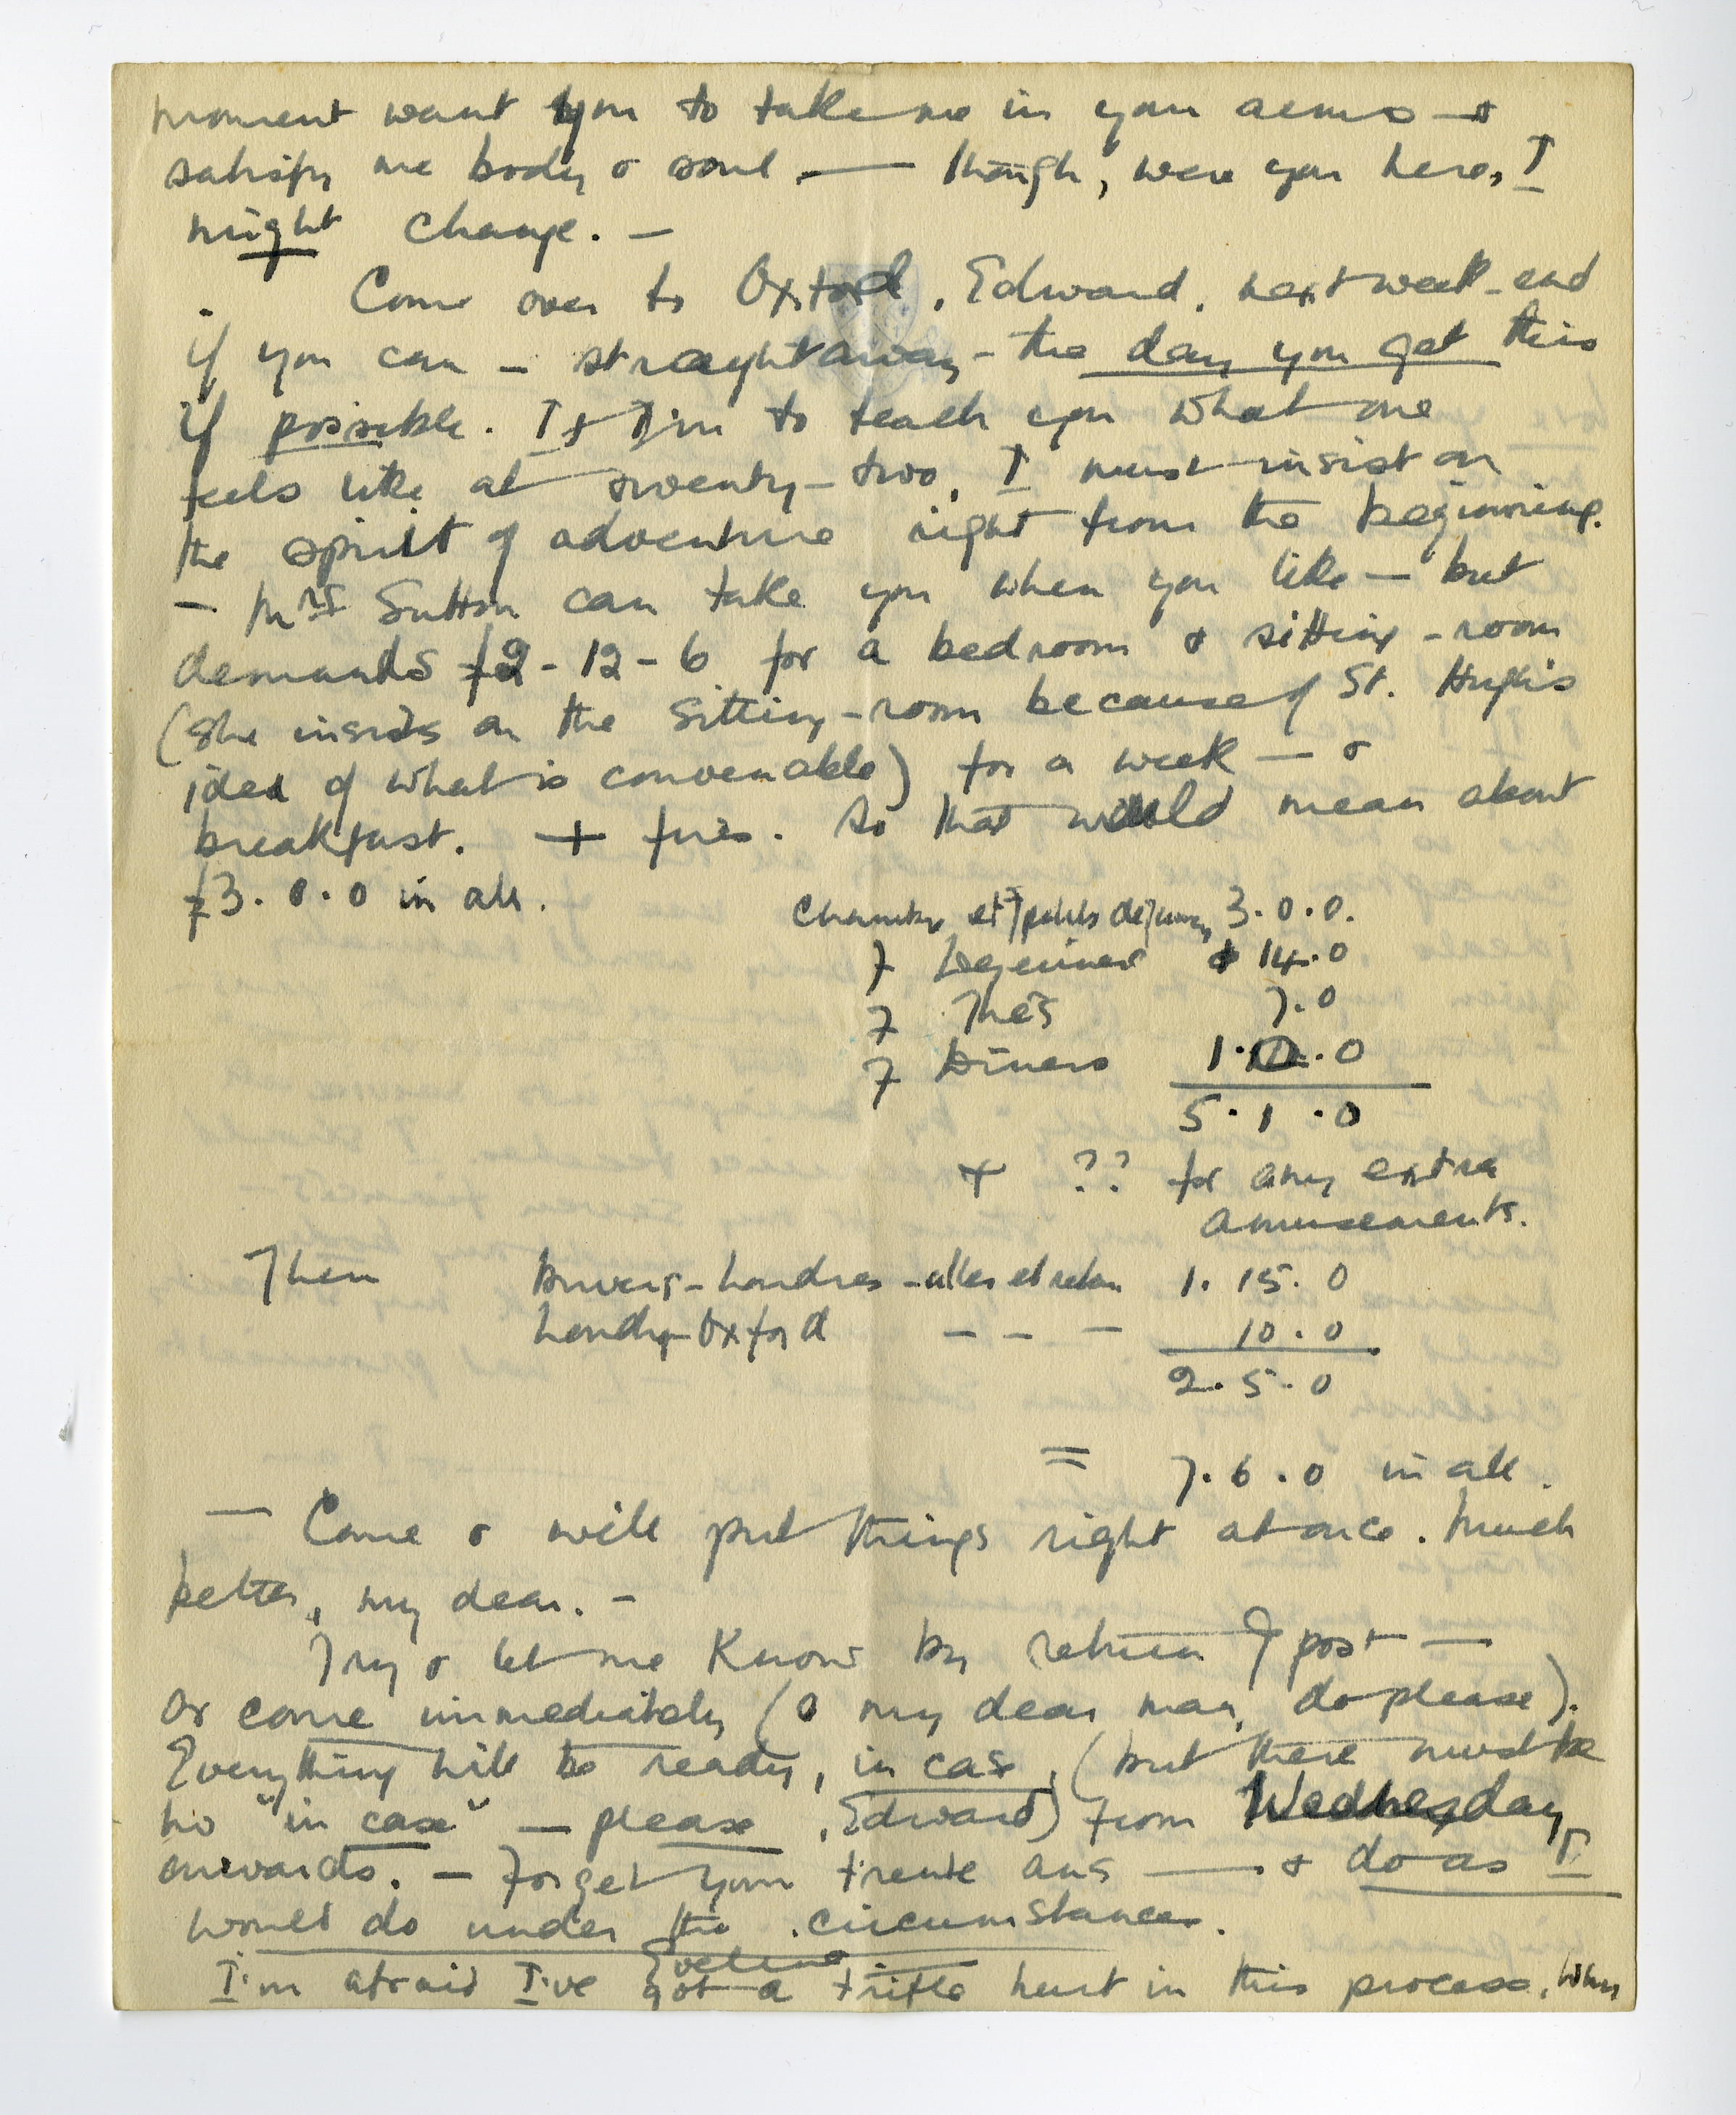 moment want you to take me in your arms — &
satisfy me body & soul. — though, were you here, I
might change. —
Come over to Oxford, Edward, next week-end
if you can — straightaway — the day you get this
if possible. If I'm to teach you what one
feels like at twenty-two, I must insist on
the spirit of adventure right from the beginning.
— Mrs Sutton can take you when you like — but
demands £2-12-6 for a bedroom & sitting-room
(she insists on the sitting-room because of St. Hugh's
idea of what is convenable) for a week — &
breakfast. + fires. So that would mean about
£3.0.0 in all.
Chambre et 7 petits dejeuners 3.0.0.
7 Dejeuners 14.0
7 Thés 7.0
7 Diners 1.0.0
5.1.0
+ ?? for any extra
amusements.
Then Anvers-Londres - aller et retour 1.15.0
Londres-Oxford — — — 10.0
2.5.0
= 7.6.0 in all.
— Come & will put things right at once. Much
better, my dear. —
Try & let me know by return of post —
or come immediately (O my dear man, do please).
Everything will be ready, in case, (but there must be
no "in case" — please, Edward) from Wednesday
onwards. — Forget your trente ans — & do as I
would do under the circumstances.
Eveline
I'm afraid I've got a trifle hurt in this process. When